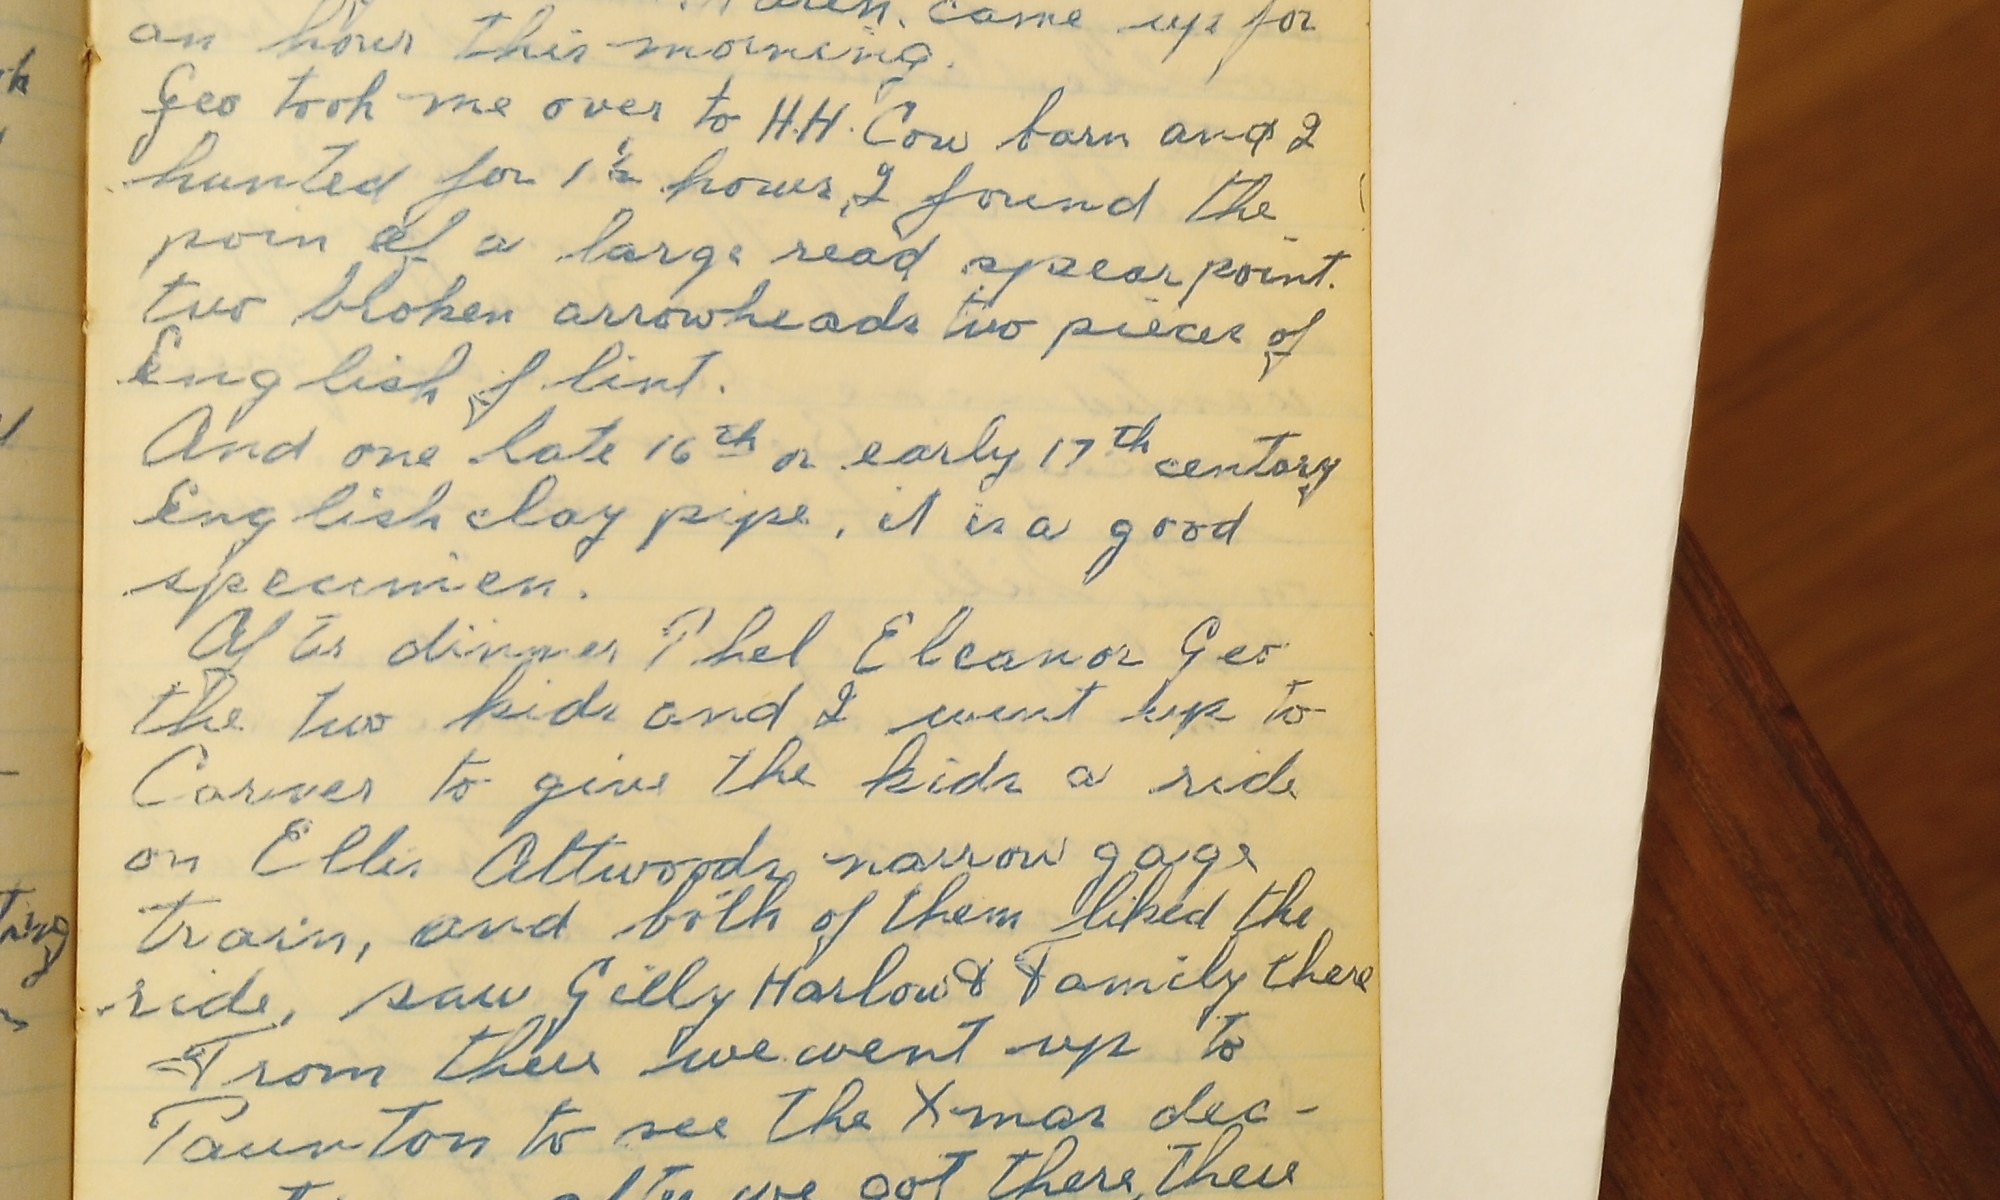 came up for
an hour this morning.
Geo took me over to H.H. Cow barn and I
hunted for 1½ hours, I found the
poin of a large read spear point.
two bloken arrowheads two pieces of
English flint.
And one late 16th or early 17th centory
English clay pipe, it is a good
specimen.
After dinner Phel Eleanor Geo
the two kids and I went up to
Carver to give the kids a ride
on Ellis Attwoods narrow gage
train, and both of them liked the
ride, saw Gilly Harlow & Family there
From there we went up to
Taunton to see the Xmas dec-
after we got there, there